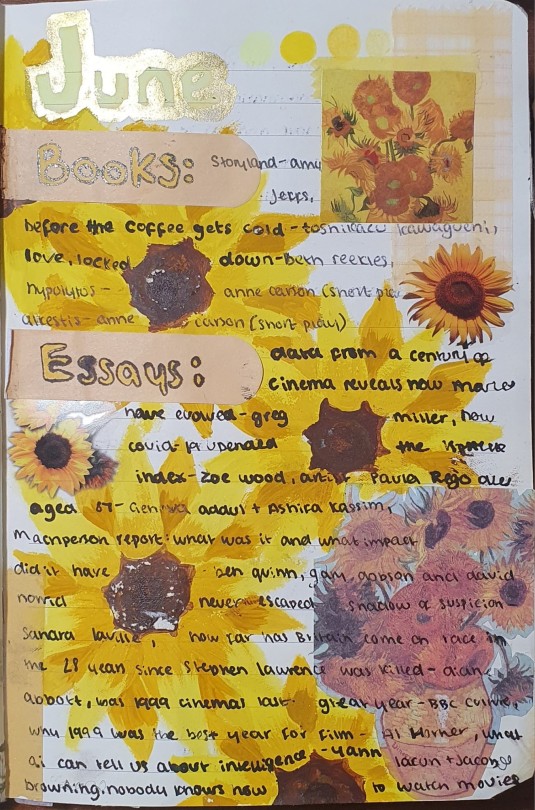 June
Books: Storyland - amy
Jeffs,
before the coffee gets cold - toshikazu kawaguchi,
love, locked down - beth reekles,
hypolytos - anne carson (short play
alkestis - anne carson (short play)
Essays: data from a century of
cinema reveals how movies
have evolved - greg miller, how
covid-19 upended the
index - zoe wood, artist Paula Rego dies
aged 87 - + Ashifa Kassim,
Macpherson report: what was it and what impact
did it have - ben quinn, and david
never escaped shadow of suspicion
Sandra laville, how far has Britain come on race in
the 28 years since Stephen lawrence was killed - diane
abbott, was 1999 cinemas last great year - BBC culture,
why 1999 was the best year for film - Al Horner, what
ai can tell us about intelligence - yann lecun + Jacob
browning, nobody knows how to watch movies